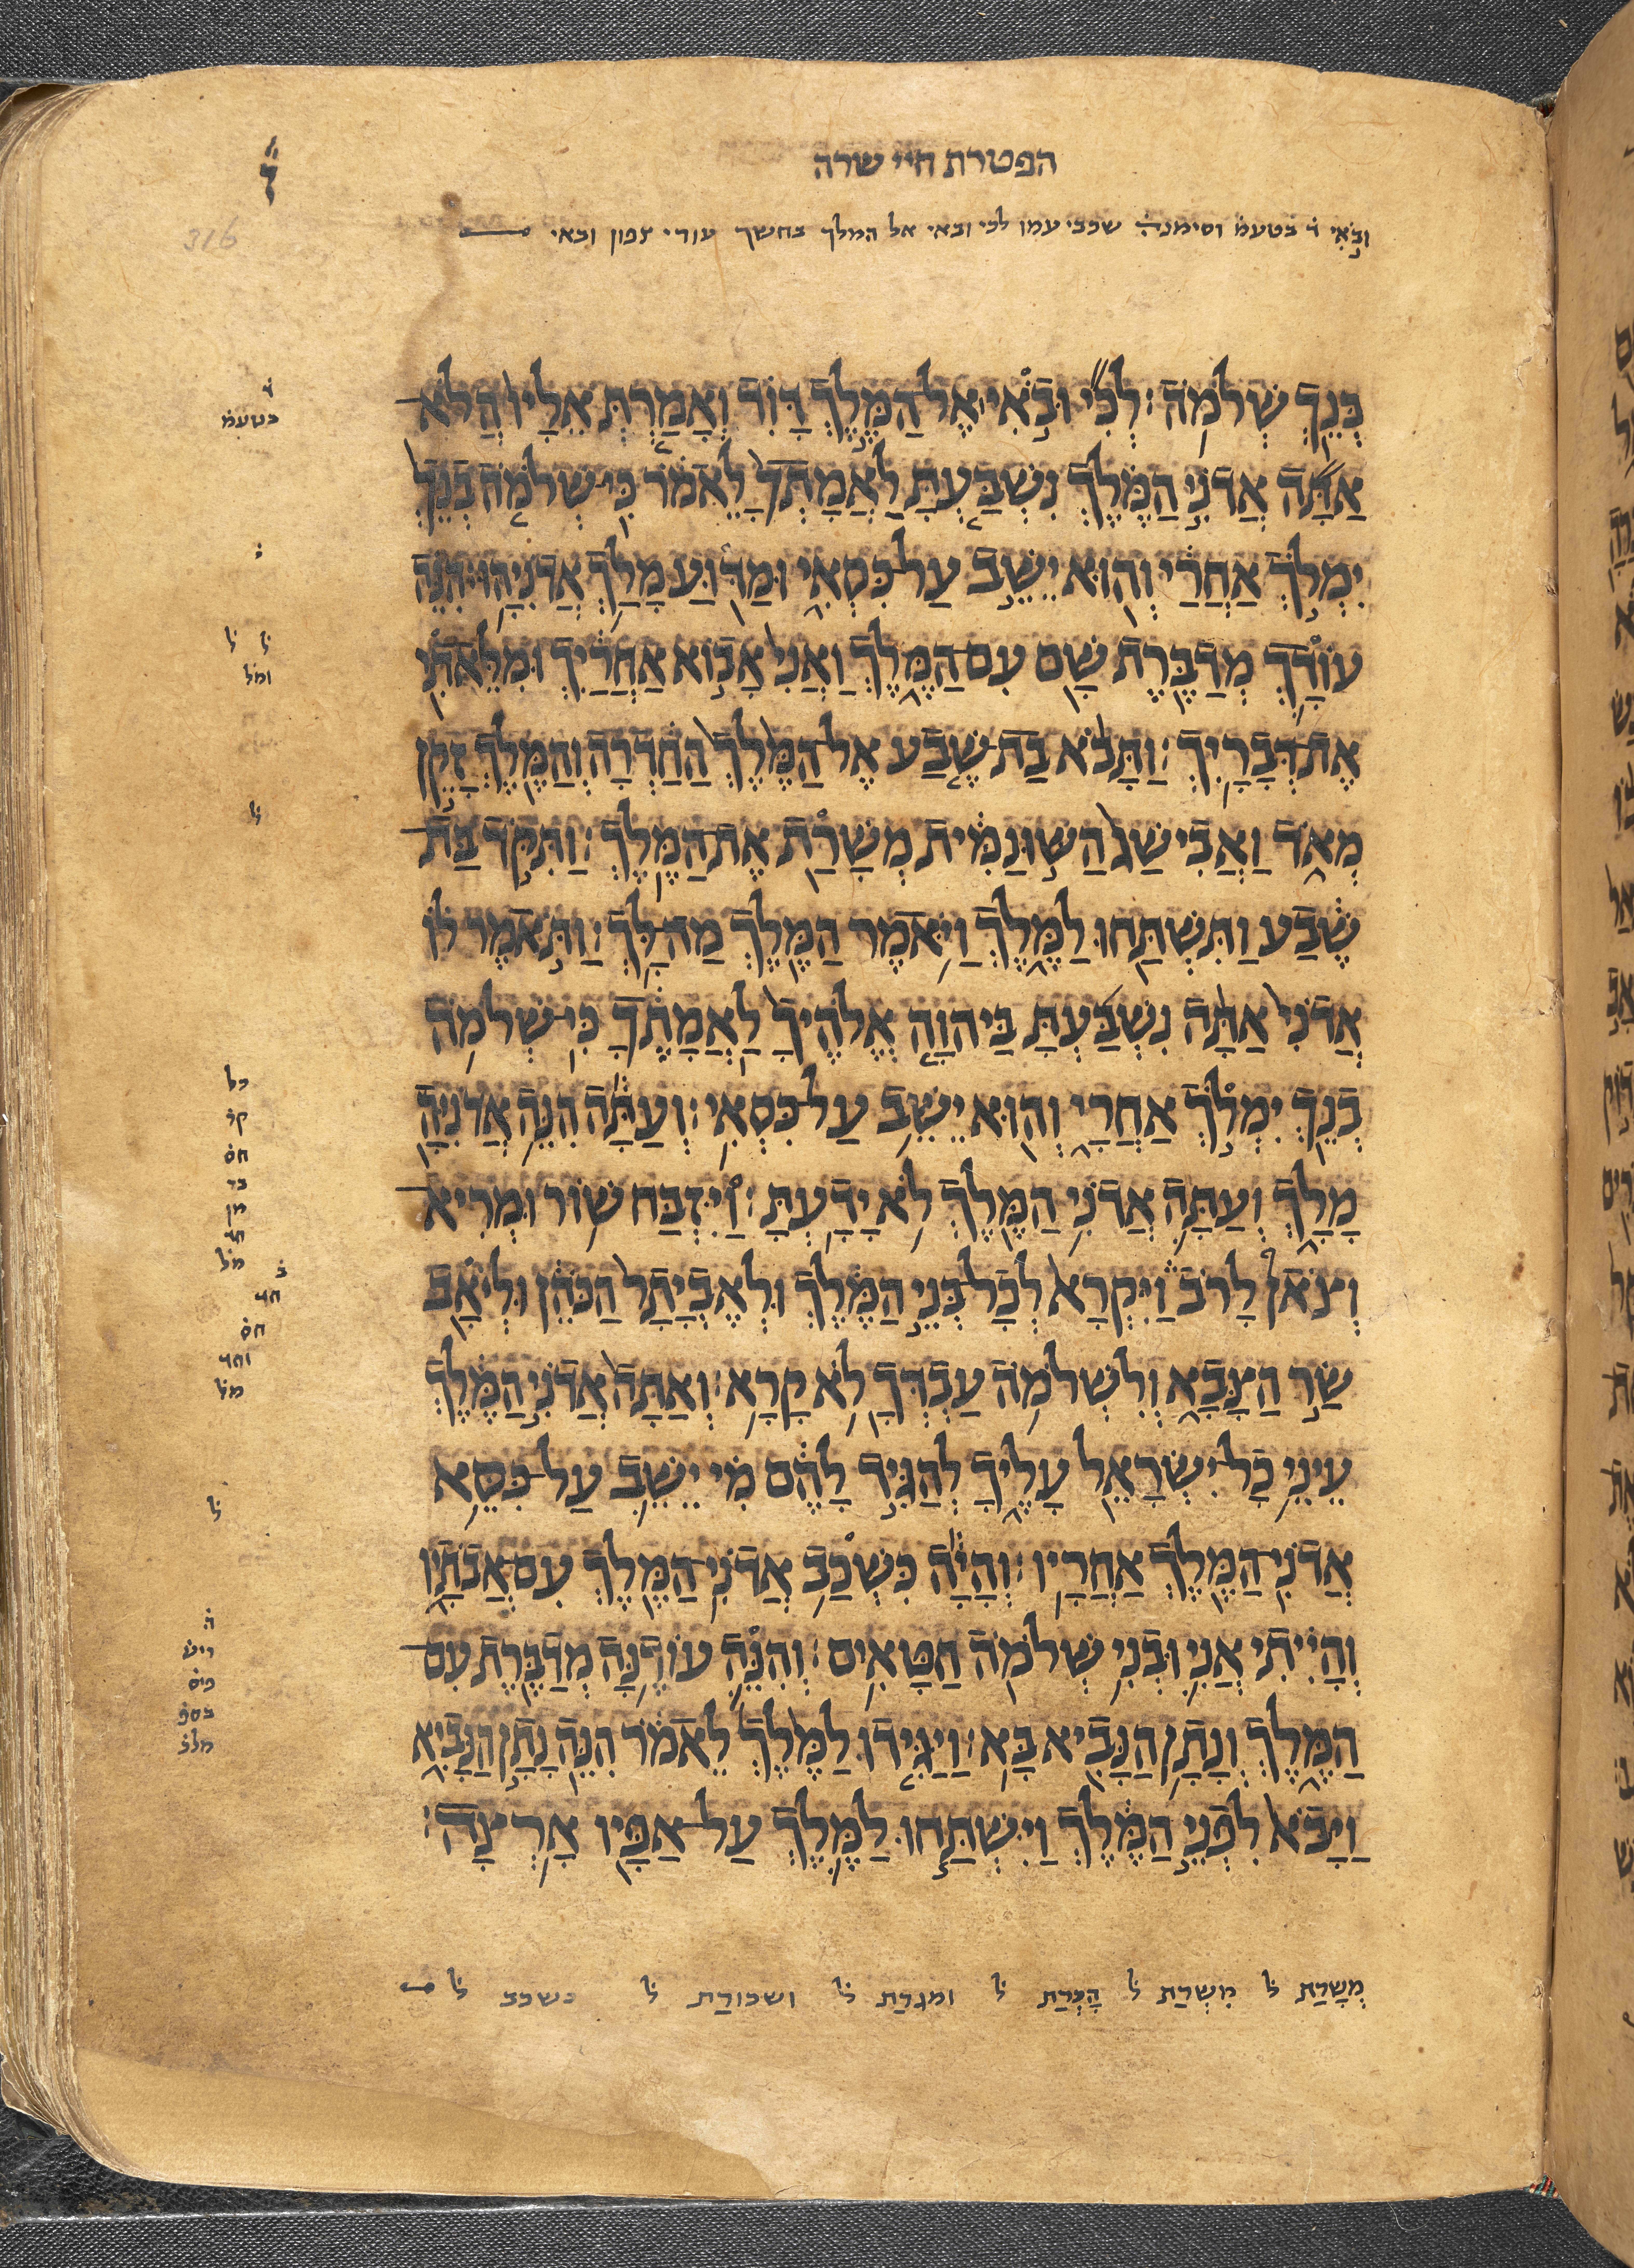 הפטרת חיי שרה
ובאי ד בטעמ וסימנה שכבי עמו לכי ובאי אל המלך בחשך עורי צפון ובאי
316
בְּנֵךְ שְׁלֹמֹה׃ לְכִי וּבֹאִי אֶל הַמֶּלֶךְ דָּוִד וְאָמַרְתְּ אֵלָיו הֲלֹא
בטעמ
אַתָּה אֲדֹנִי הַמֶּלֶךְ נִשְׁבַּעְתָּ לַאֲמָתְךָ לֵאמֹר כִּי שְׁלֹמֹה בְנֵךְ
יִמְלֹךְ אַחֲרַי וְהוּא יֵשֵׁב עַל כִּסְאִי וּמַדּוּעַ מָלַךְ אֲדֹנִיָּהוּ׃ הִנֵּה
עוֹדָךְ מְדַבֶּרֶת שָׁם עִם הַמֶּלֶךְ וַאֲנִי אָבוֹא אַחֲרַיִךְ וּמִלֵּאתִי
ל ל
ומל
אֶת דְּבָרָיִךְ׃ וַתָּבֹא בַת שֶׁבַע אֶל הַמֶּלֶךְ הַחַדְרָה וְהַמֶּלֶךְ זָקֵן
מְאֹד וַאֲבִישַׁג הַשּׁוּנַמִּית מְשָׁרַת אֶת הַמֶּלֶךְ׃ וַתִּקֹּד בַּת
ל
שֶׁבַע וַתִּשְׁתַּחוּ לַמֶּלֶךְ וַיֹּאמֶר הַמֶּלֶךְ מַה לָּךְ׃ וַתֹּאמֶר לוֹ
אֲדֹנִי אַתָּה נִשְׁבַּעְתָּ בַּיהוָה אֱלֹהֶיךָ לַאֲמָתֶךָ כִּי שְׁלֹמֹה
בְּנֵךְ יִמְלֹךְ אַחֲרָי וְהוּא יֵשֵׁב עַל כִּסְאִי׃ וְעַתָּה הִנֵּה אֲדֹנִיָּה
כל
חס
מָלָךְ וְעַתָּה אֲדֹנִי הַמֶּלֶךְ לֹא יָדָעְתָּ׃ וַיִּזְבַּח שׁוֹר וּמְרִיא
מן
מל
וְצֹאן לָרֹב וַיִּקְרָא לְכָל בְּנֵי הַמֶּלֶךְ וּלְאֶבְיָתָר הַכֹּהֵן וּלְיֹאָב
חס
שַׂר הַצָּבָא וְלִשְׁלֹמֹה עַבְדְּךָ לֹא קָרָא׃ וְאַתָּה אֲדֹנִי הַמֶּלֶךְ
מל
עֵינֵי כָל יִשְׂרָאֵל עָלֶיךָ לְהַגִּיד לָהֶם מִי יֵשֵׁב עַל כִּסֵּא
ל
אֲדֹנִי הַמֶּלֶךְ אַחֲרָיו׃ וְהָיָה כִּשְׁכַב אֲדֹנִי הַמֶּלֶךְ עִם אֲבֹתָיו
וְהָיִיתִי אֲנִי וּבְנִי שְׁלֹמֹה חַטָּאִים׃ וְהִנֵּה עוֹדֶנָּה מְדַבֶּרֶת עִם
הַמֶּלֶךְ וְנָתָן הַנָּבִיא בָּא׃ וַיַּגִּידוּ לַמֶּלֶךְ לֵאמֹר הִנֵּה נָתָן הַנָּבִיא
וַיָּבֹא לִפְנֵי הַמֶּלֶךְ וַיִּשְׁתַּחוּ לַמֶּלֶךְ עַל אַפָּיו אָרְצָה׃
מְשָׁרַת ל מִשְׁרַת ל הָכְרַת ל ומגרַת ל ושכורַת ל כשכב ל